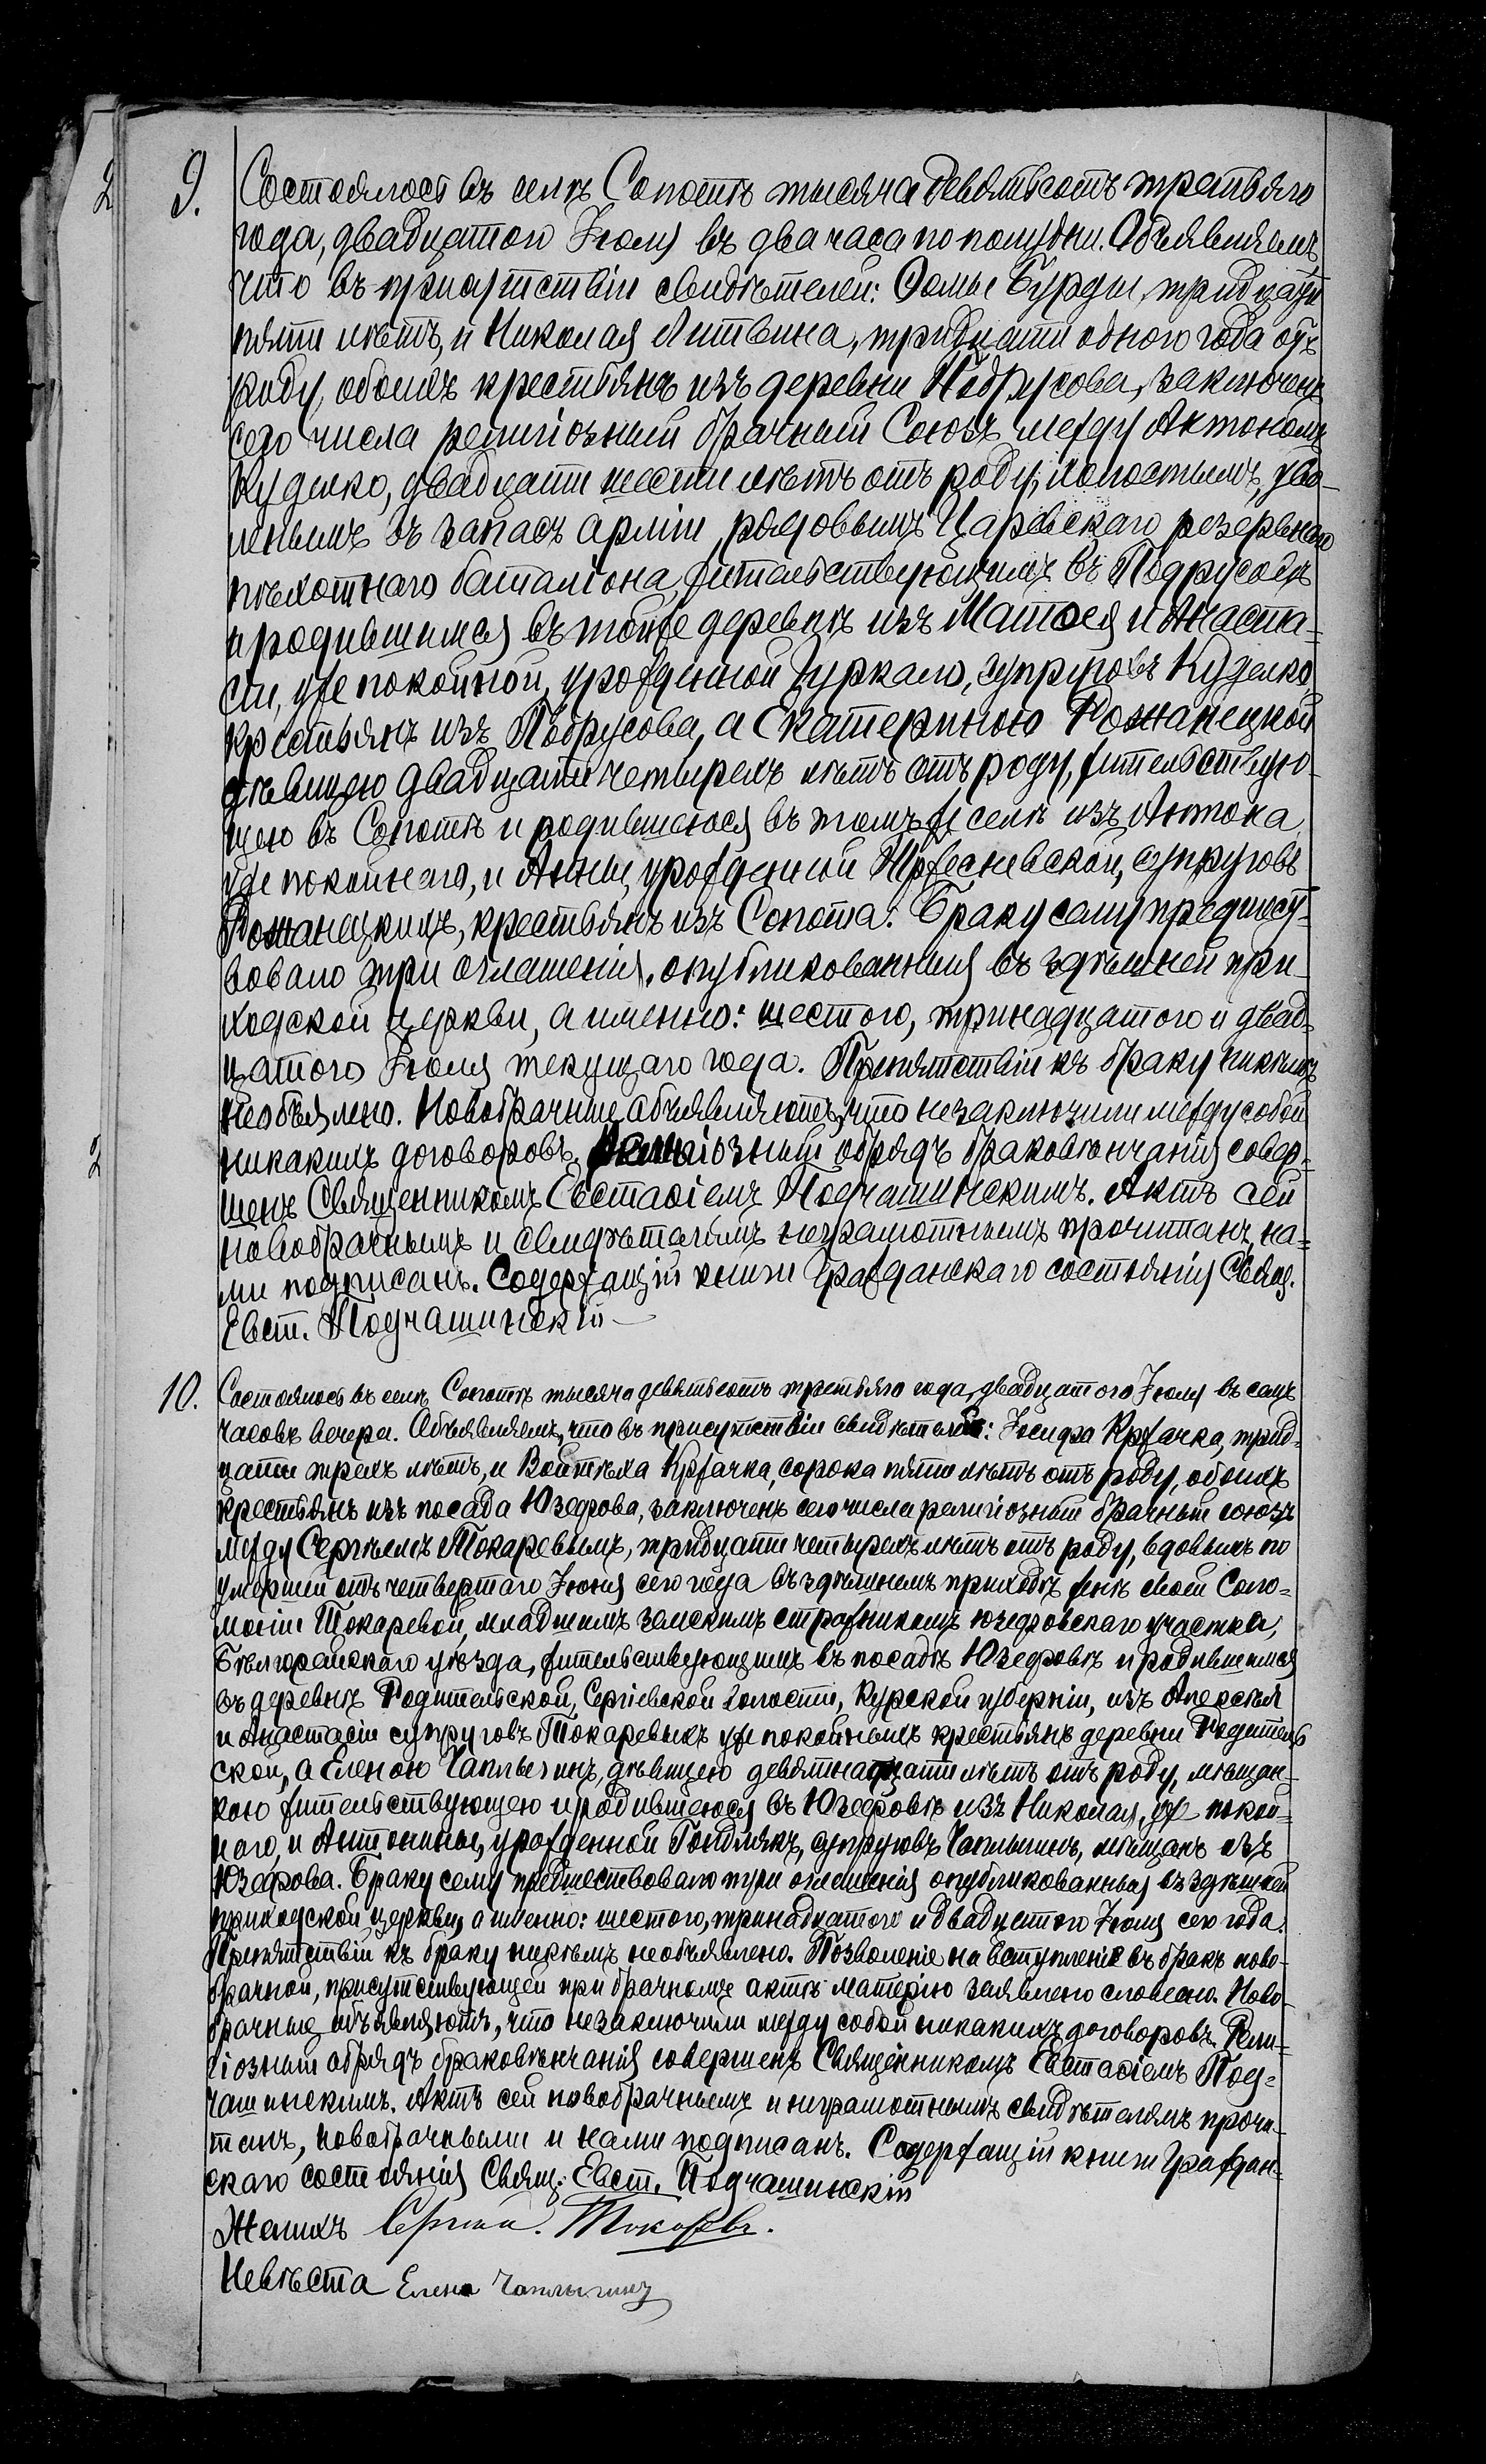 2
9. Состоялось въ селѣ Сопотѣ тысяча девятьсотъ третьяго
года, двадцатого Іюля въ два часа по полудни. Объявляемъ
что въ присутствіи свидѣтелей: Ѳомы Бурды, тридцати
пяти лѣтъ, и Николая Литвина, тридцати одного года отъ
роду, обоихъ крестьянъ изъ деревни Подрусова, заключенъ
сего числа религіозный брачный Союзъ между Антономъ
Куделко, двадцати шести лѣтъ отъ роду, холостымъ, уво-
леннымъ въ запасъ арміи, рядовымъ Царевскаго резервнаго
пѣхотнаго баталіона, жительствующимъ въ Подрусовѣ
и родившимся въ тойже деревнѣ изъ Матѳея и Анаста-
сіи, уже покойной, урожденной Гуркало, супруговъ Куделко,
крестьянъ изъ Подрусова, а Екатериною Рожанецкой
дѣвицею двадцати четырехъ лѣтъ отъ роду, жительствую-
щею въ Сопотѣ и родившеюся въ томъ же селѣ изъ Антона
уже покойнаго, и Анны, урожденной супруговъ
Рожанецкихъ, крестьянъ изъ Сопота. Браку сему предшест-
вовало три оглашенія, опубликованныя въ здѣшней при-
ходской церкви, а именно: шестого, тринадцатого и двад-
цатого Іюля текущаго года. Препятствій къ браку никѣмъ
необъявлено. Новобрачные объявляютъ, что незаключили между собой
никакихъ договоровъ. Религіозный обрядъ браковѣнчанія совер-
шенъ Священникомъ Евстаѳіемъ Подчашинскимъ. Актъ сей
новобрачнымъ и свидѣтелямъ неграмотнымъ прочитанъ, на-
ми подписанъ. Содержащій книги Гражданскаго состоянія Свящ.
Евст. Подчашинскій
2
10. Состоялось въ селѣ Сопотѣ тысяча девятьсотъ третьяго года, двадцатого Іюля въ семь
часовъ вечера. Объявляемъ, что въ присутствіи свидѣтелей: Іосифа Кржачка, трид-
цати трехъ лѣтъ, и Войтѣха Кржачка, сорока пяти лѣтъ отъ роду, обоихъ
крестьянъ изъ посада Юзефова, заключенъ сего числа религіозный брачный союзъ
между Сергѣемъ Токаревымъ, тридцати четырехъ лѣтъ отъ роду, вдовымъ по
умершей отъ четвертаго Іюня сего года въ здѣшнемъ приходѣ женѣ своей Соло-
моніи Токаревой, младшимъ земскимъ стражникомъ юзефовскаго участка,
Бѣлгорайскаго уѣзда, жительствующимъ въ посадѣ Юзефовѣ и родившимся
въ деревнѣ Родительской, Сергіевской волости, Курской губерніи, изъ Алексѣя
и Анастасіи супруговъ Токаревыхъ уже покойныхъ крестьянъ деревни Родитель
ской, а Еленою Чаплыгинъ, дѣвицею девятнадцати лѣтъ отъ роду, мѣщан-
кою жительствующею и родившеюся въ Юзефовѣ изъ Николая, уже покой-
наго, и Антонины, урожденной супруговъ Чаплыгинъ, мѣщанъ изъ
Юзефова. Браку сему предшествовало три оглашенія опубликованныя въ здѣшней
приходской церкви, а именно: шестого, тринадцатого и двадцатого Іюля сего года.
Препятствій къ браку никѣмъ необъявлено. Позволеніе на вступленіе въ бракъ ново-
брачной, присутствующей при брачномъ актѣ матерію заявлено словесно. Ново-
брачные объявляютъ, что незаключили между собой никакихъ договоровъ. Рели-
гіозный обрядъ браковѣнчанія совершенъ Священникомъ Евстаѳіемъ Под-
чашинскимъ. Актъ сей новобрачнымъ и неграмотнымъ свидѣтелямъ прочи-
танъ, новобрачными и нами подписанъ. Содержащій книги Граждан-
скаго состоянія Свящ: Евст. Подчашинскій
Женихъ Сергѣй. Токаревъ.
Невѣста Елена Чаплыгинъ